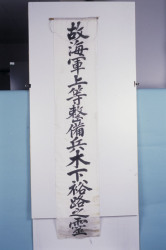 故海軍上等整備兵木下裕路之霊